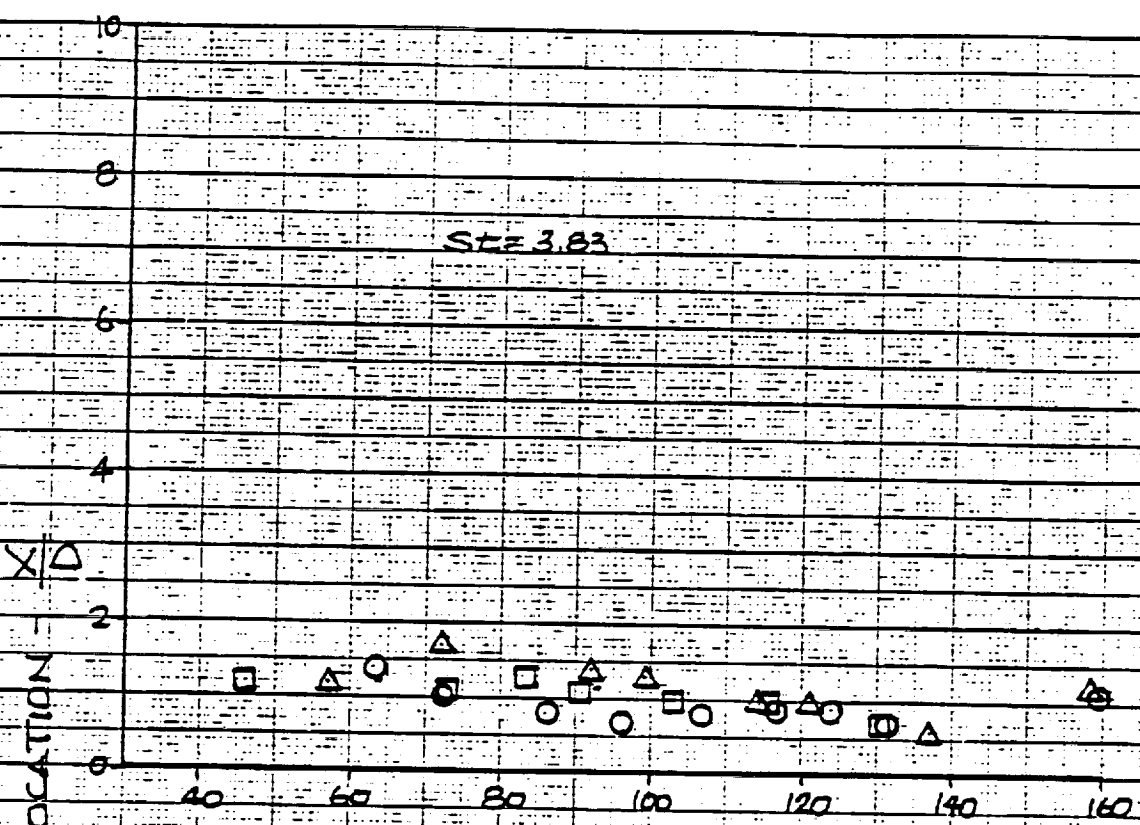 10
8
St= 3.83
6
4
X/D
2
OCATION —
0
40 60 80 100 120 140 160